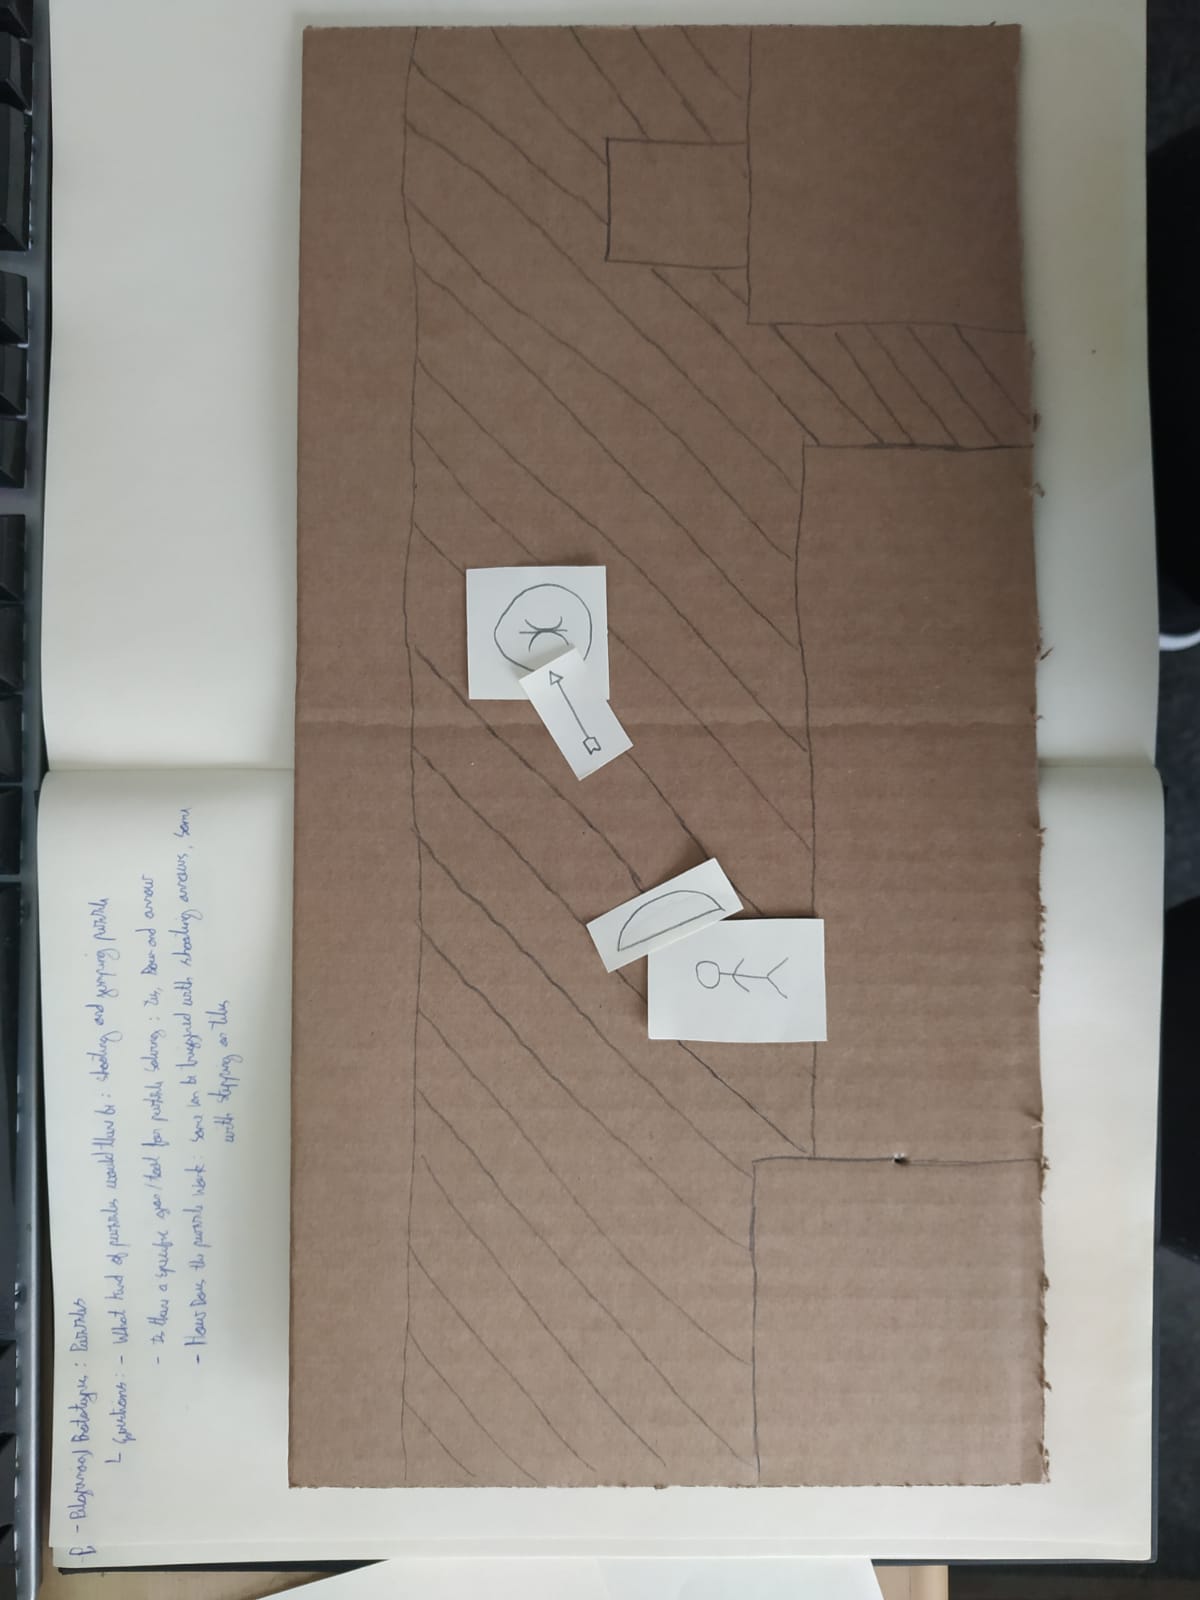 - Pelgrimag Prototypes : Puzzles
Questions : - What kind of puzzles would there be : shooting and jumping puzzle
- Is there a specific gear/tool for puzzle solving : Yes, Bow and arrow
- How Does the puzzle work : some can be triggered with shooting arrows, some
with stepping on tiles